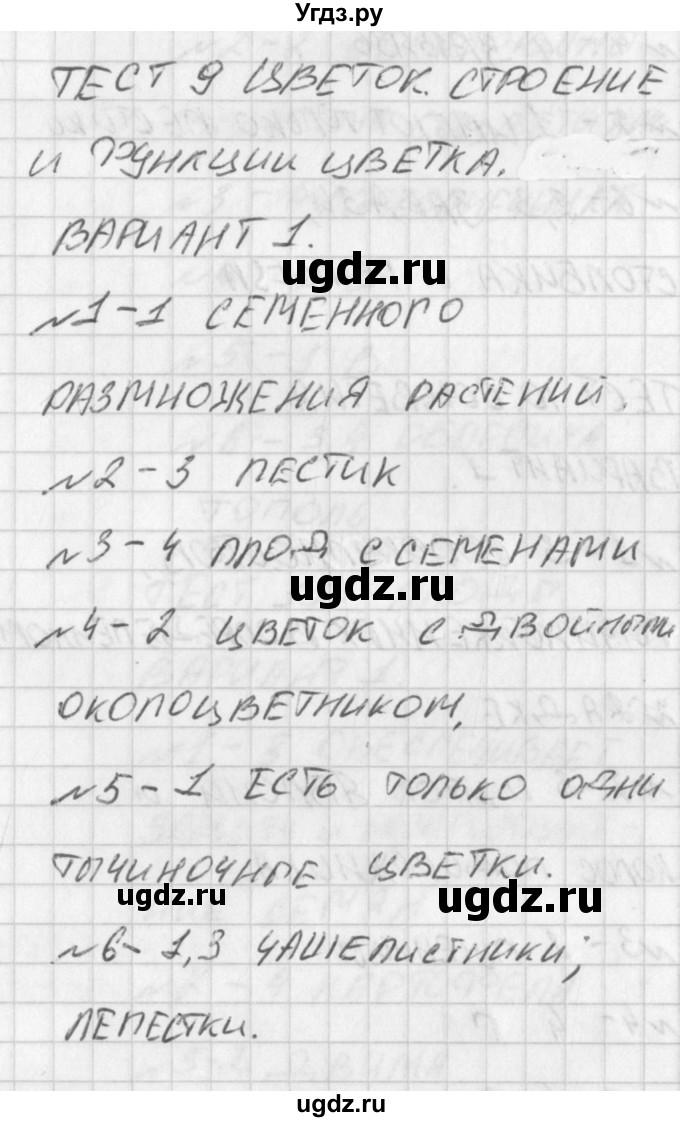 Угдз.ру
ТЕСТ 9 ЦВЕТОК. СТРОЕНИЕ
И ФУНКЦИИ ЦВЕТКА.
ВАРИАНТ 1.
ugdz.ru
№1-1 СЕМЕННОГО
РАЗМНОЖЕНИЯ РАСТЕНИЙ.
№2-3 ПЕСТИК
№3-4 ПЛОД С СЕМЕНАМИ
ugdz.ru
№4-2 ЦВЕТОК С ДВОЙНЫМ
ОКОЛОЦВЕТНИКОМ,
№5-1 ЕСТЬ ТОЛЬКО ОДНИ
ТЫЧИНОЧНЫЕ ЦВЕТКИ.
ugdz.ru ugdz.ru
№6-1,3 ЧАШЕЛИСТНИКИ;
ЛЕПЕСТКИ.
ugdz.ru